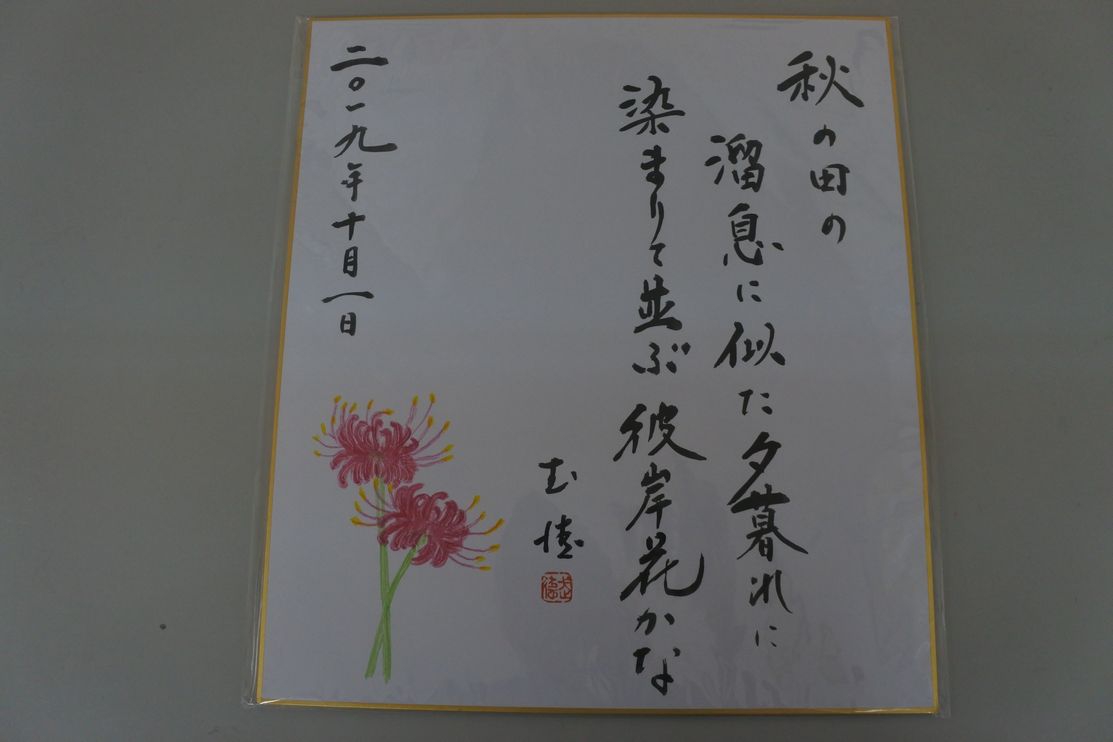 秋の田の
溜息に似た夕暮れに
染まりて並ぶ彼岸花かな
二〇一九年十月一日